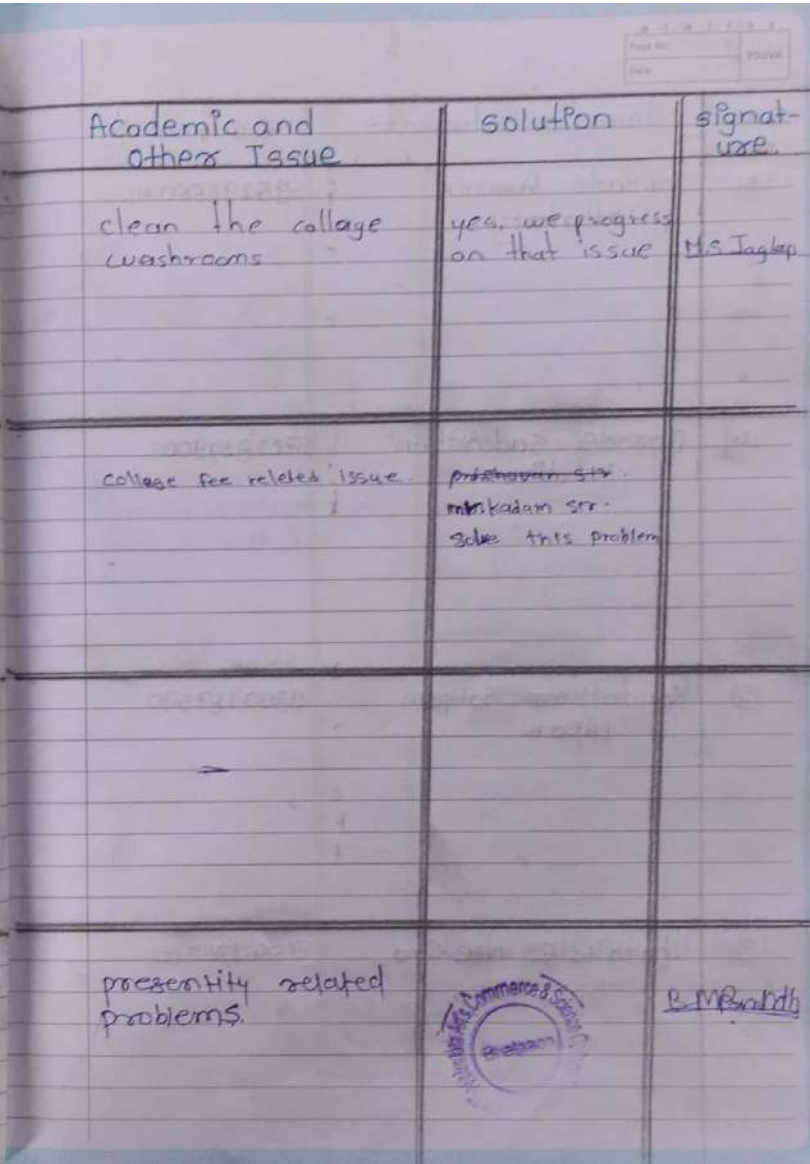 Page No.
Date
YOUVA
Academic and
other Issue
solution
signat-
ure.
clean the collage
washrooms
yes, we progress
on that issue
M.S. Jagtap
collage fee releted issue.
sir.
kadam sir.
solve this problem
-
presentity related
problems.
Arts, Commerce & Science